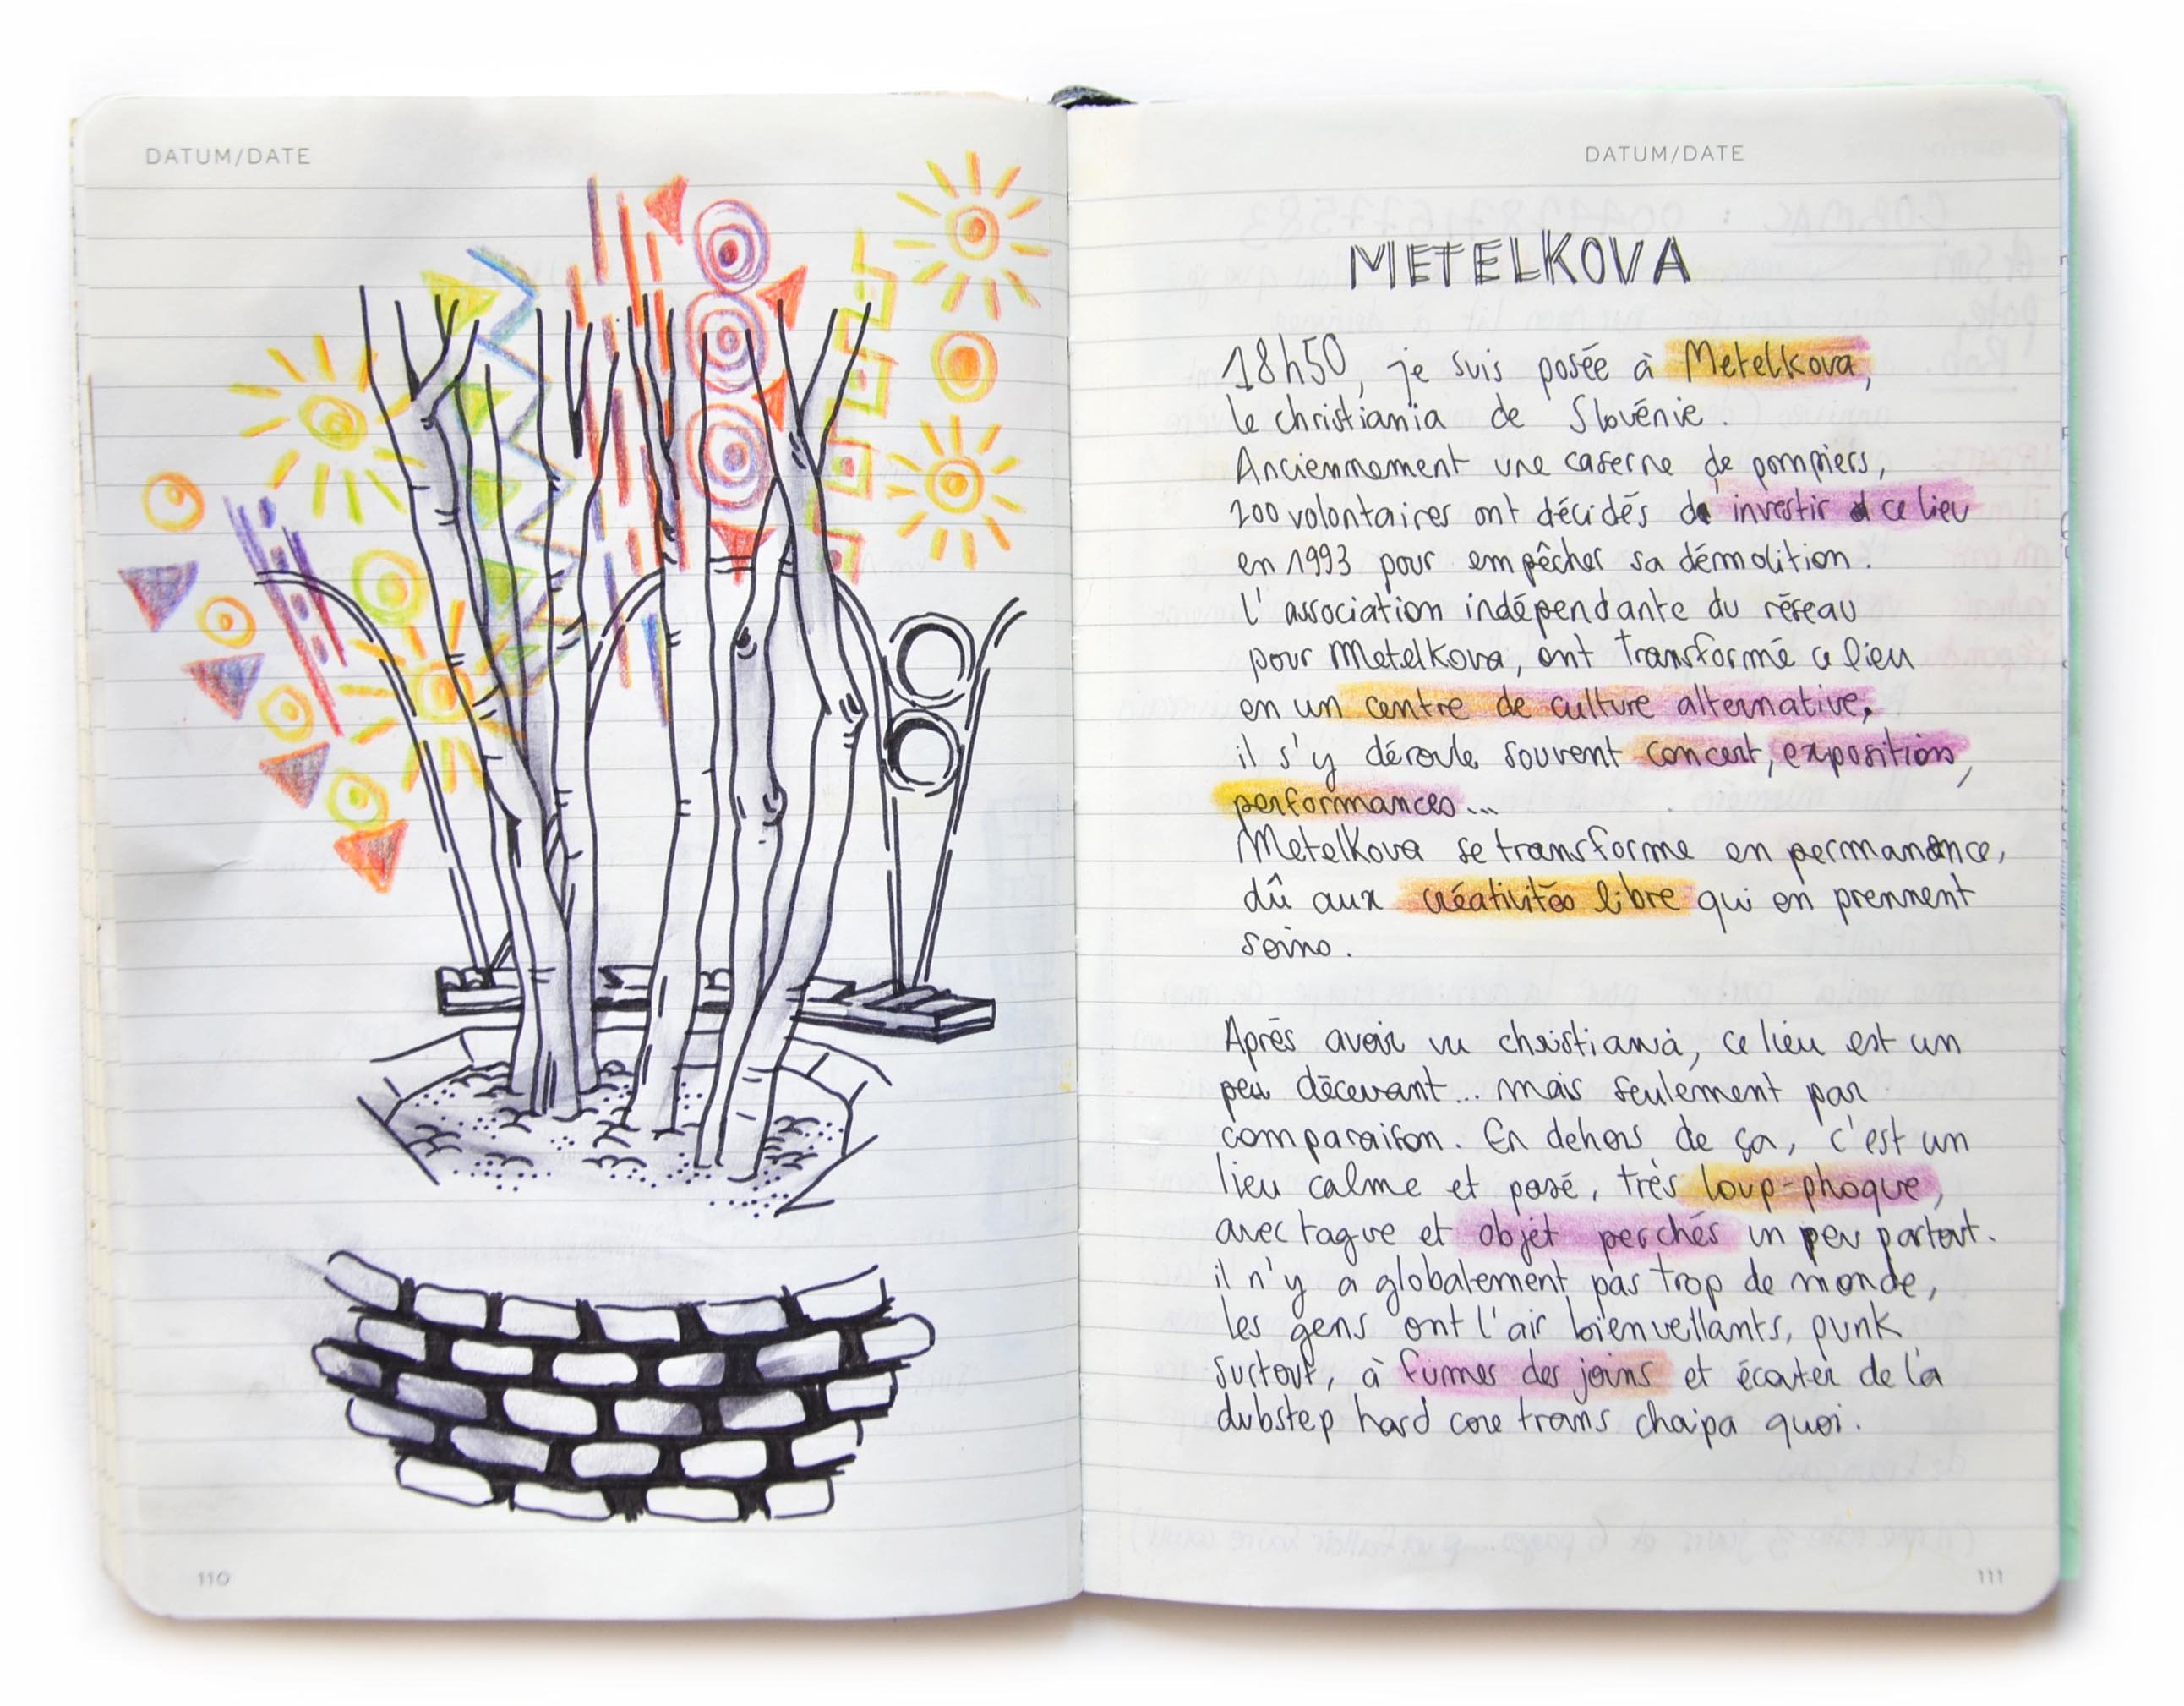 DATUM/DATE
110
DATUM/DATE
METELKOVA
18h50, je suis posée à Metelkova,
le christiania de Slovénie.
Anciennement une caserne de pompiers,
200 volontaires ont décidés de investir ce lieu
en 1993 pour empêcher sa démolition.
l'association indépendante du réseau
pour Metelkova, ont transformé ce lieu
en un centre de culture alternative,
il s'y déroule souvent concert, exposition,
performances...
Metelkova se transforme en permanence,
dû aux créativités libre qui en prennent
soins.
Après avoir vu christiania, ce lieu est un
peu décevant... mais seulement par
comparaison. En dehors de ça, c'est un
lieu calme et posé, très loup-phoque,
avec tague et objet perchés un peu partout.
il n'y a globalement pas trop de monde,
les gens ont l'air bienveillants, punk
surtout, à fumer des joins et écouter de la
dubstep hard core trans chaipa quoi.
111